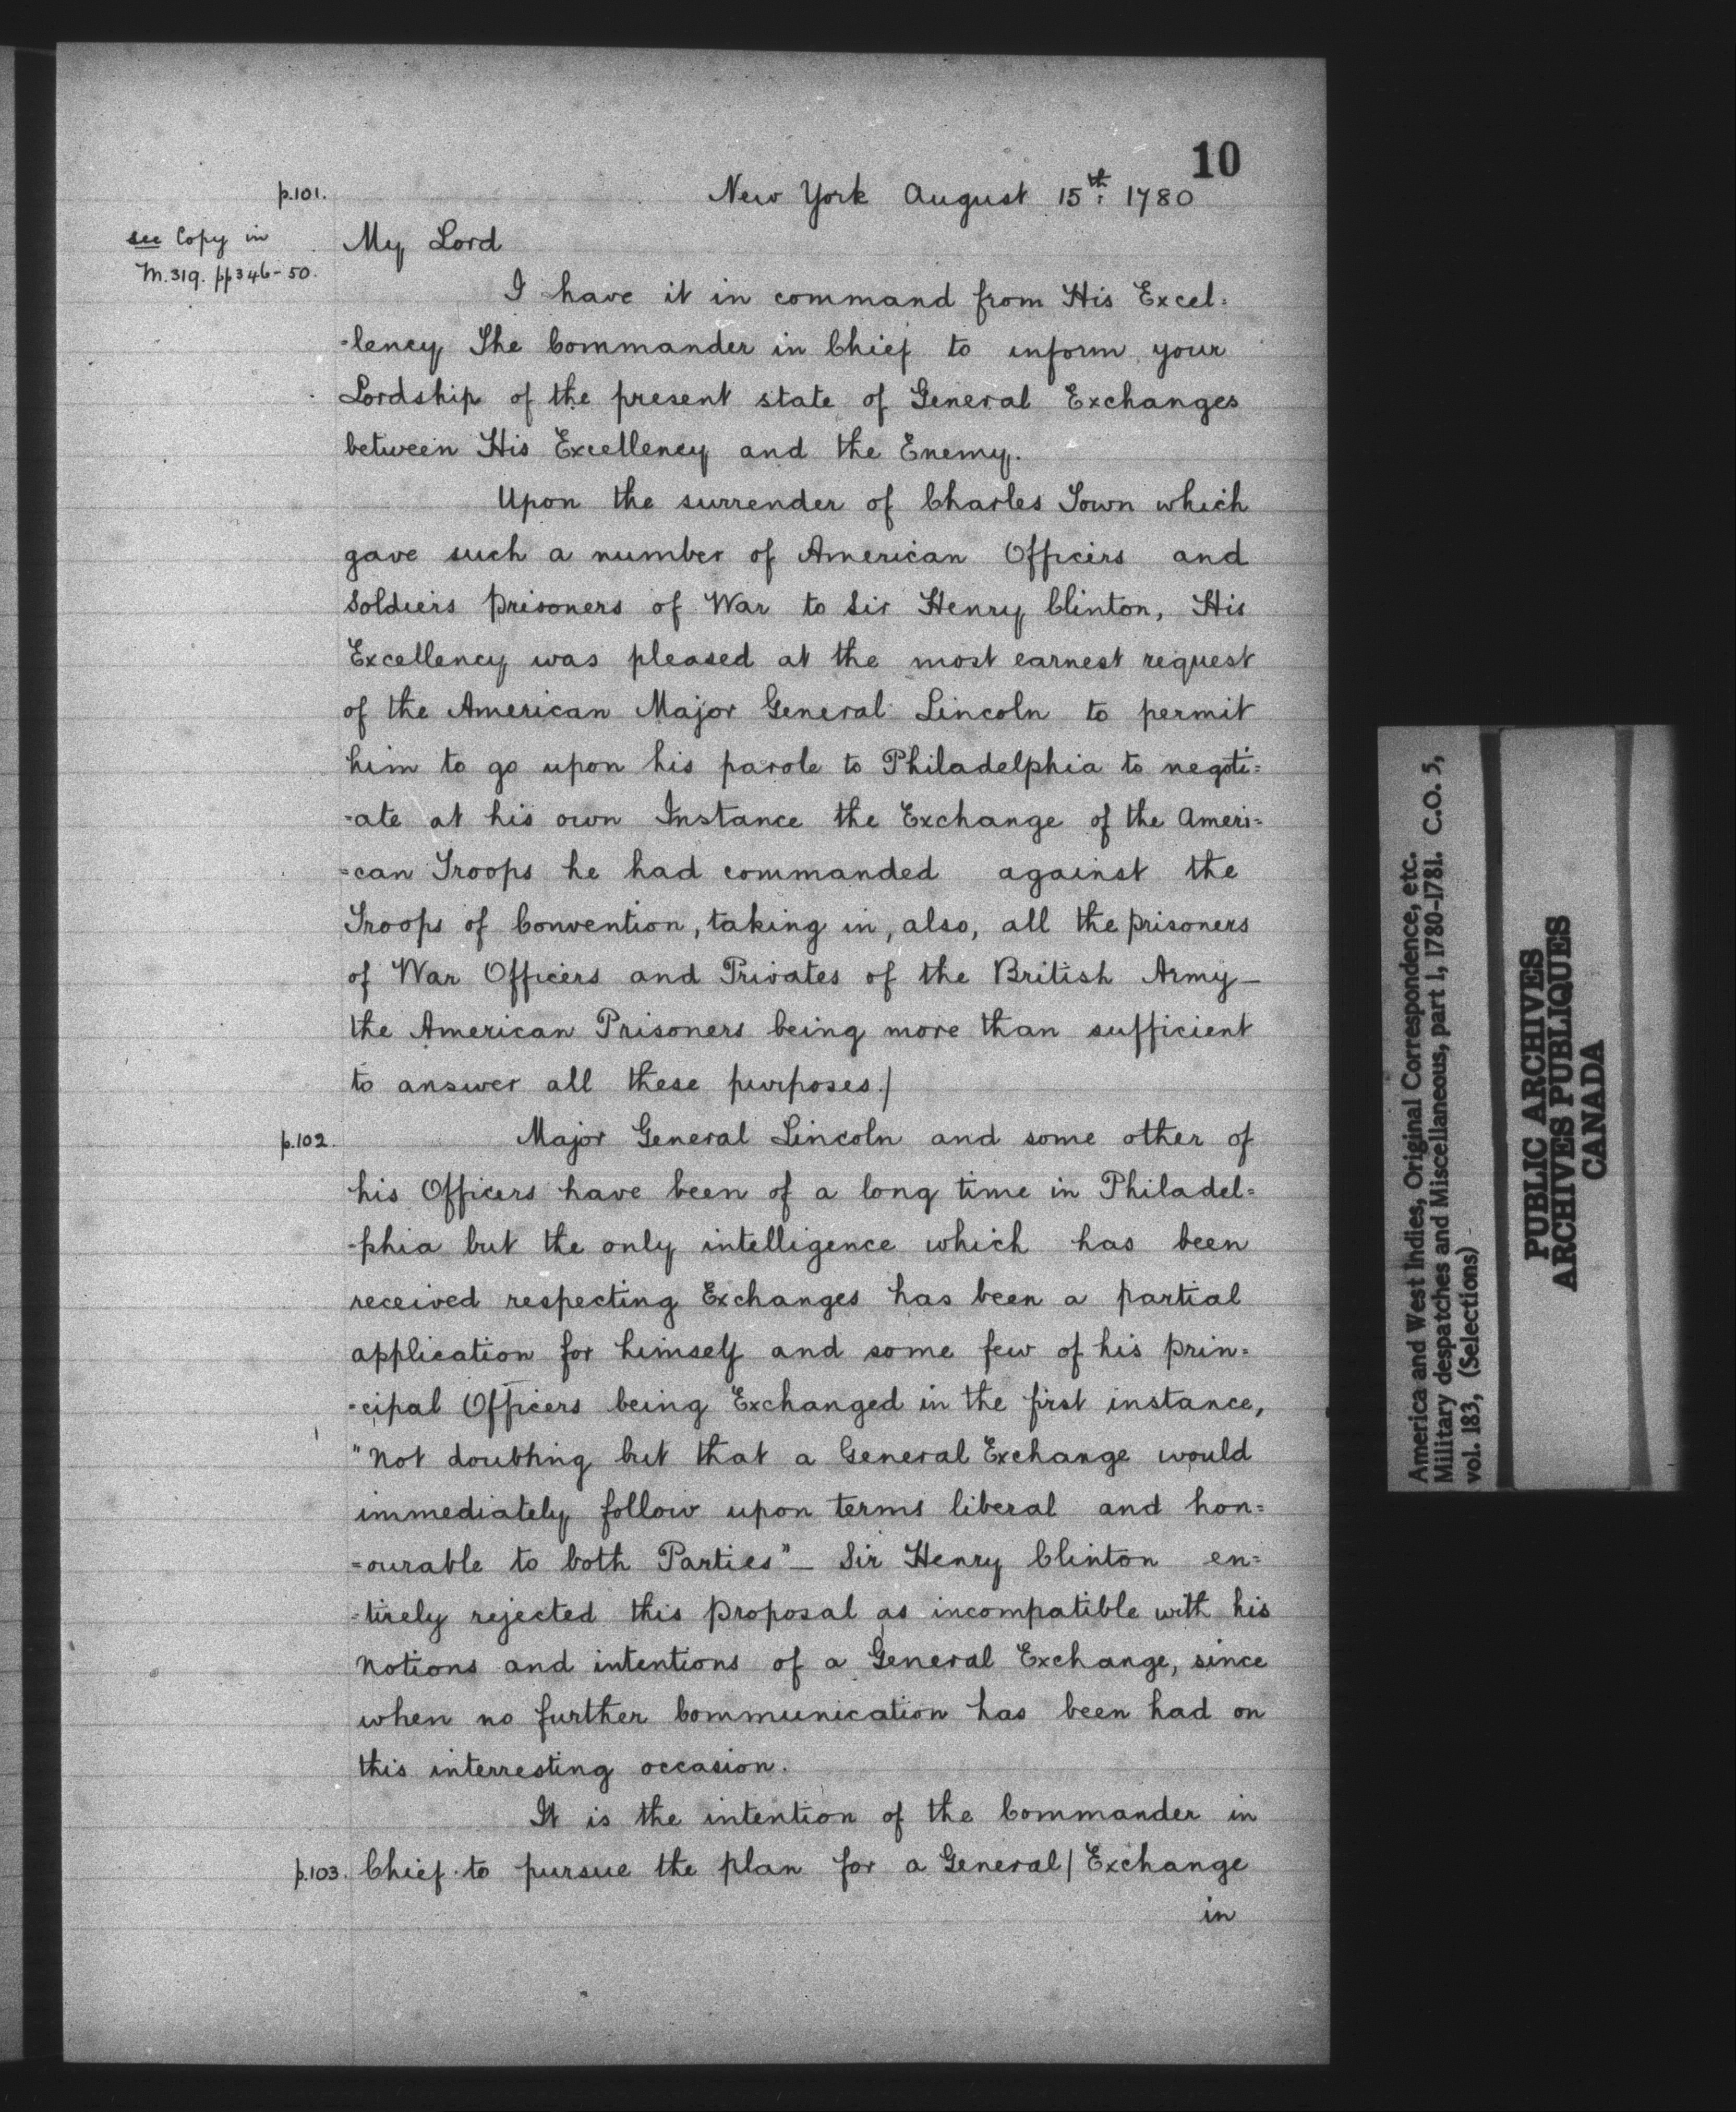 10
p.101.
New York August 15th: 1780
see Copy in
M.319. pp346-50.
My Lord
I have it in command from His Excel:
-lency The Commander in Chief to inform your
Lordship of the present state of General Exchanges
between His Excellency and the Enemy.
Upon the surrender of Charles Town which
gave such a number of American Officers and
Soldiers prisoners of War to Sir Henry Clinton, His
Excellency was pleased at the most earnest request
of the American Major General Lincoln to permit
him to go upon his parole to Philadelphia to negoti=
-ate at his own Instance the Exchange of the Ameri=
=can Troops he had commanded against the
Troops of Convention, taking in, also, all the prisoners
of War Officers and Privates of the British Army—
the American Prisoners being more than sufficient
to answer all these purposes./
p.102.
Major General Lincoln and some other of
his Officers have been of a long time in Philadel=
-phia but the only intelligence which has been
received respecting Exchanges has been a partial
application for himself and some few of his prin=
-cipal Officers being Exchanged in the first instance,
"Not doubting but that a General Exchange would
immediately follow upon terms liberal and hon=
=ourable to both Parties"— Sir Henry Clinton en=
=tirely rejected this proposal as incompatible with his
notions and intentions of a General Exchange, since
when no further Communication has been had on
this interresting occasion.
It is the intention of the Commander in
p.103. Chief to pursue the plan for a General/Exchange
in
America and West Indies, Original Correspondence, etc.
Military despatches and Miscellaneous, part 1, 1780-1781. C.O. 5,
vol. 183, (Selections)
PUBLIC ARCHIVES
ARCHIVES PUBLIQUES
CANADA